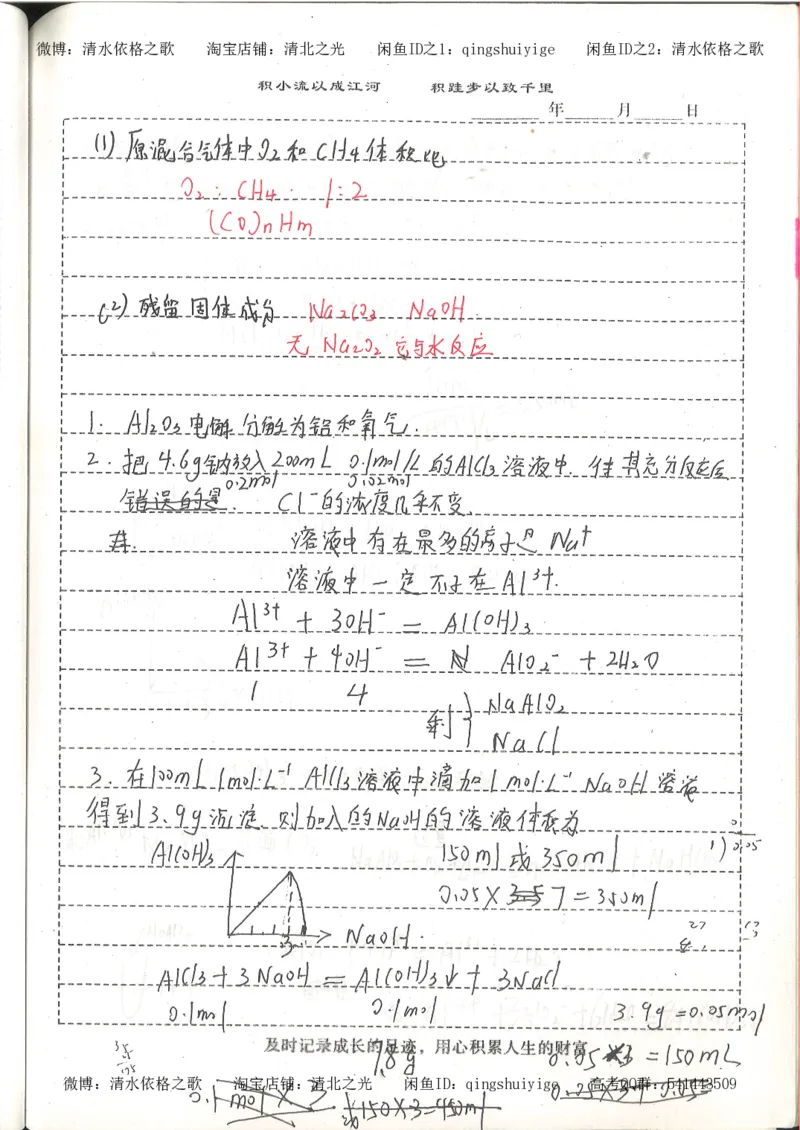 微博：清水依格之歌 淘宝店铺：清北之光 闲鱼ID之1：qingshuiyige 闲鱼ID之2：清水依格之歌
积小流以成江河 积跬步以致千里
年 月 日
(1) 原混合气体中O2和CH4体积比
O2 : CH4 : 1:2
(CO)nHm
(2) 残留固体成分 Na2CO3 NaOH
无 Na2O2 它与水反应
1. Al2O3电解分解为铝和氧气.
2. 把4.6g钠放入200mL 0.1mol/L的AlCl3溶液中. 待其充分反应后
0.2mol 0.02mol
错误的是. Cl-的浓度几乎不变.
溶液中存在最多的离子是Na+
溶液中一定不存在Al3+.
Al3+ + 3OH- = Al(OH)3
Al3+ + 4OH- = AlO2- + 2H2O
1 4
剩 } NaAlO2
NaCl
3. 在100mL 1mol·L-1 AlCl3溶液中滴加1mol·L-1 NaOH溶液
得到3.9g沉淀.则加入的NaOH的溶液体积为
Al(OH)3 150ml或350ml
1) 0.05
0.05×7=350ml
3 NaOH.
27 17
AlCl3+3NaOH=Al(OH)3↓+3NaCl
0.1mol 0.1mol 3.9g=0.05mol
及时记录成长的足迹，用心积累人生的财富
7.8g 0.05×3=150mL
微博：清水依格之歌 淘宝店铺：清北之光 闲鱼ID：qingshuiyige 高考QQ群：541443509
0.1mol×3 150×3=450ml